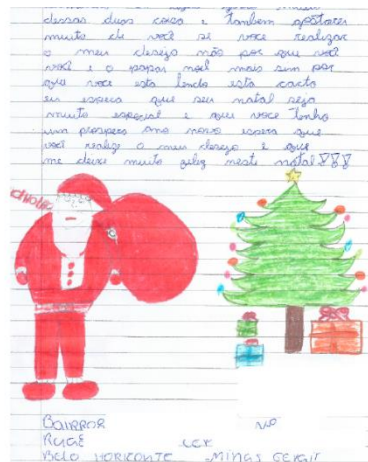 dessas duas coisa e tambem gostarei
muito de você se voce realizar
o meu desejo não por que você
você e o papai noel mais sim por
que voce esta lendo esta carta
eu espero que seu natal seja
muito especial e que voce tenha
um prospero ano novo espero que
você realize o meu desejo e que
me deixe muito feliz neste natal!!!
Bairror
Rua
Belo Horizonte Minas Gerais